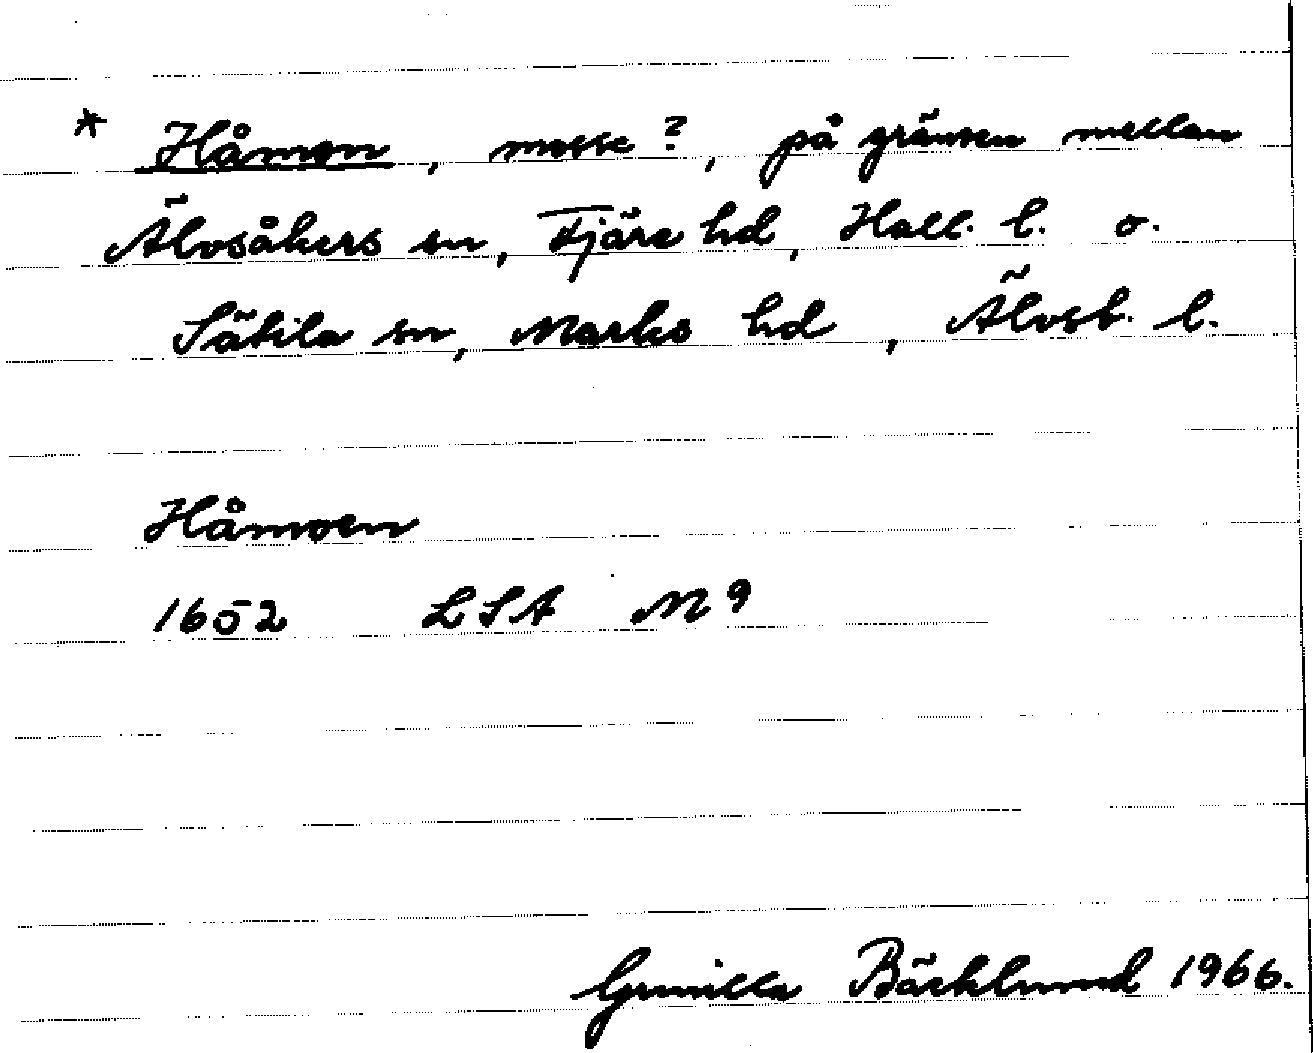 * Håmon, mosse?, på gränsen mellan
Älvsåkers sn, Fjäre hd, Hall. l. o.
Sätila sn, Marks hd, Älvsb. l.
Håmoen
1652 LSA M 9
Gunilla Bäcklund 1966.